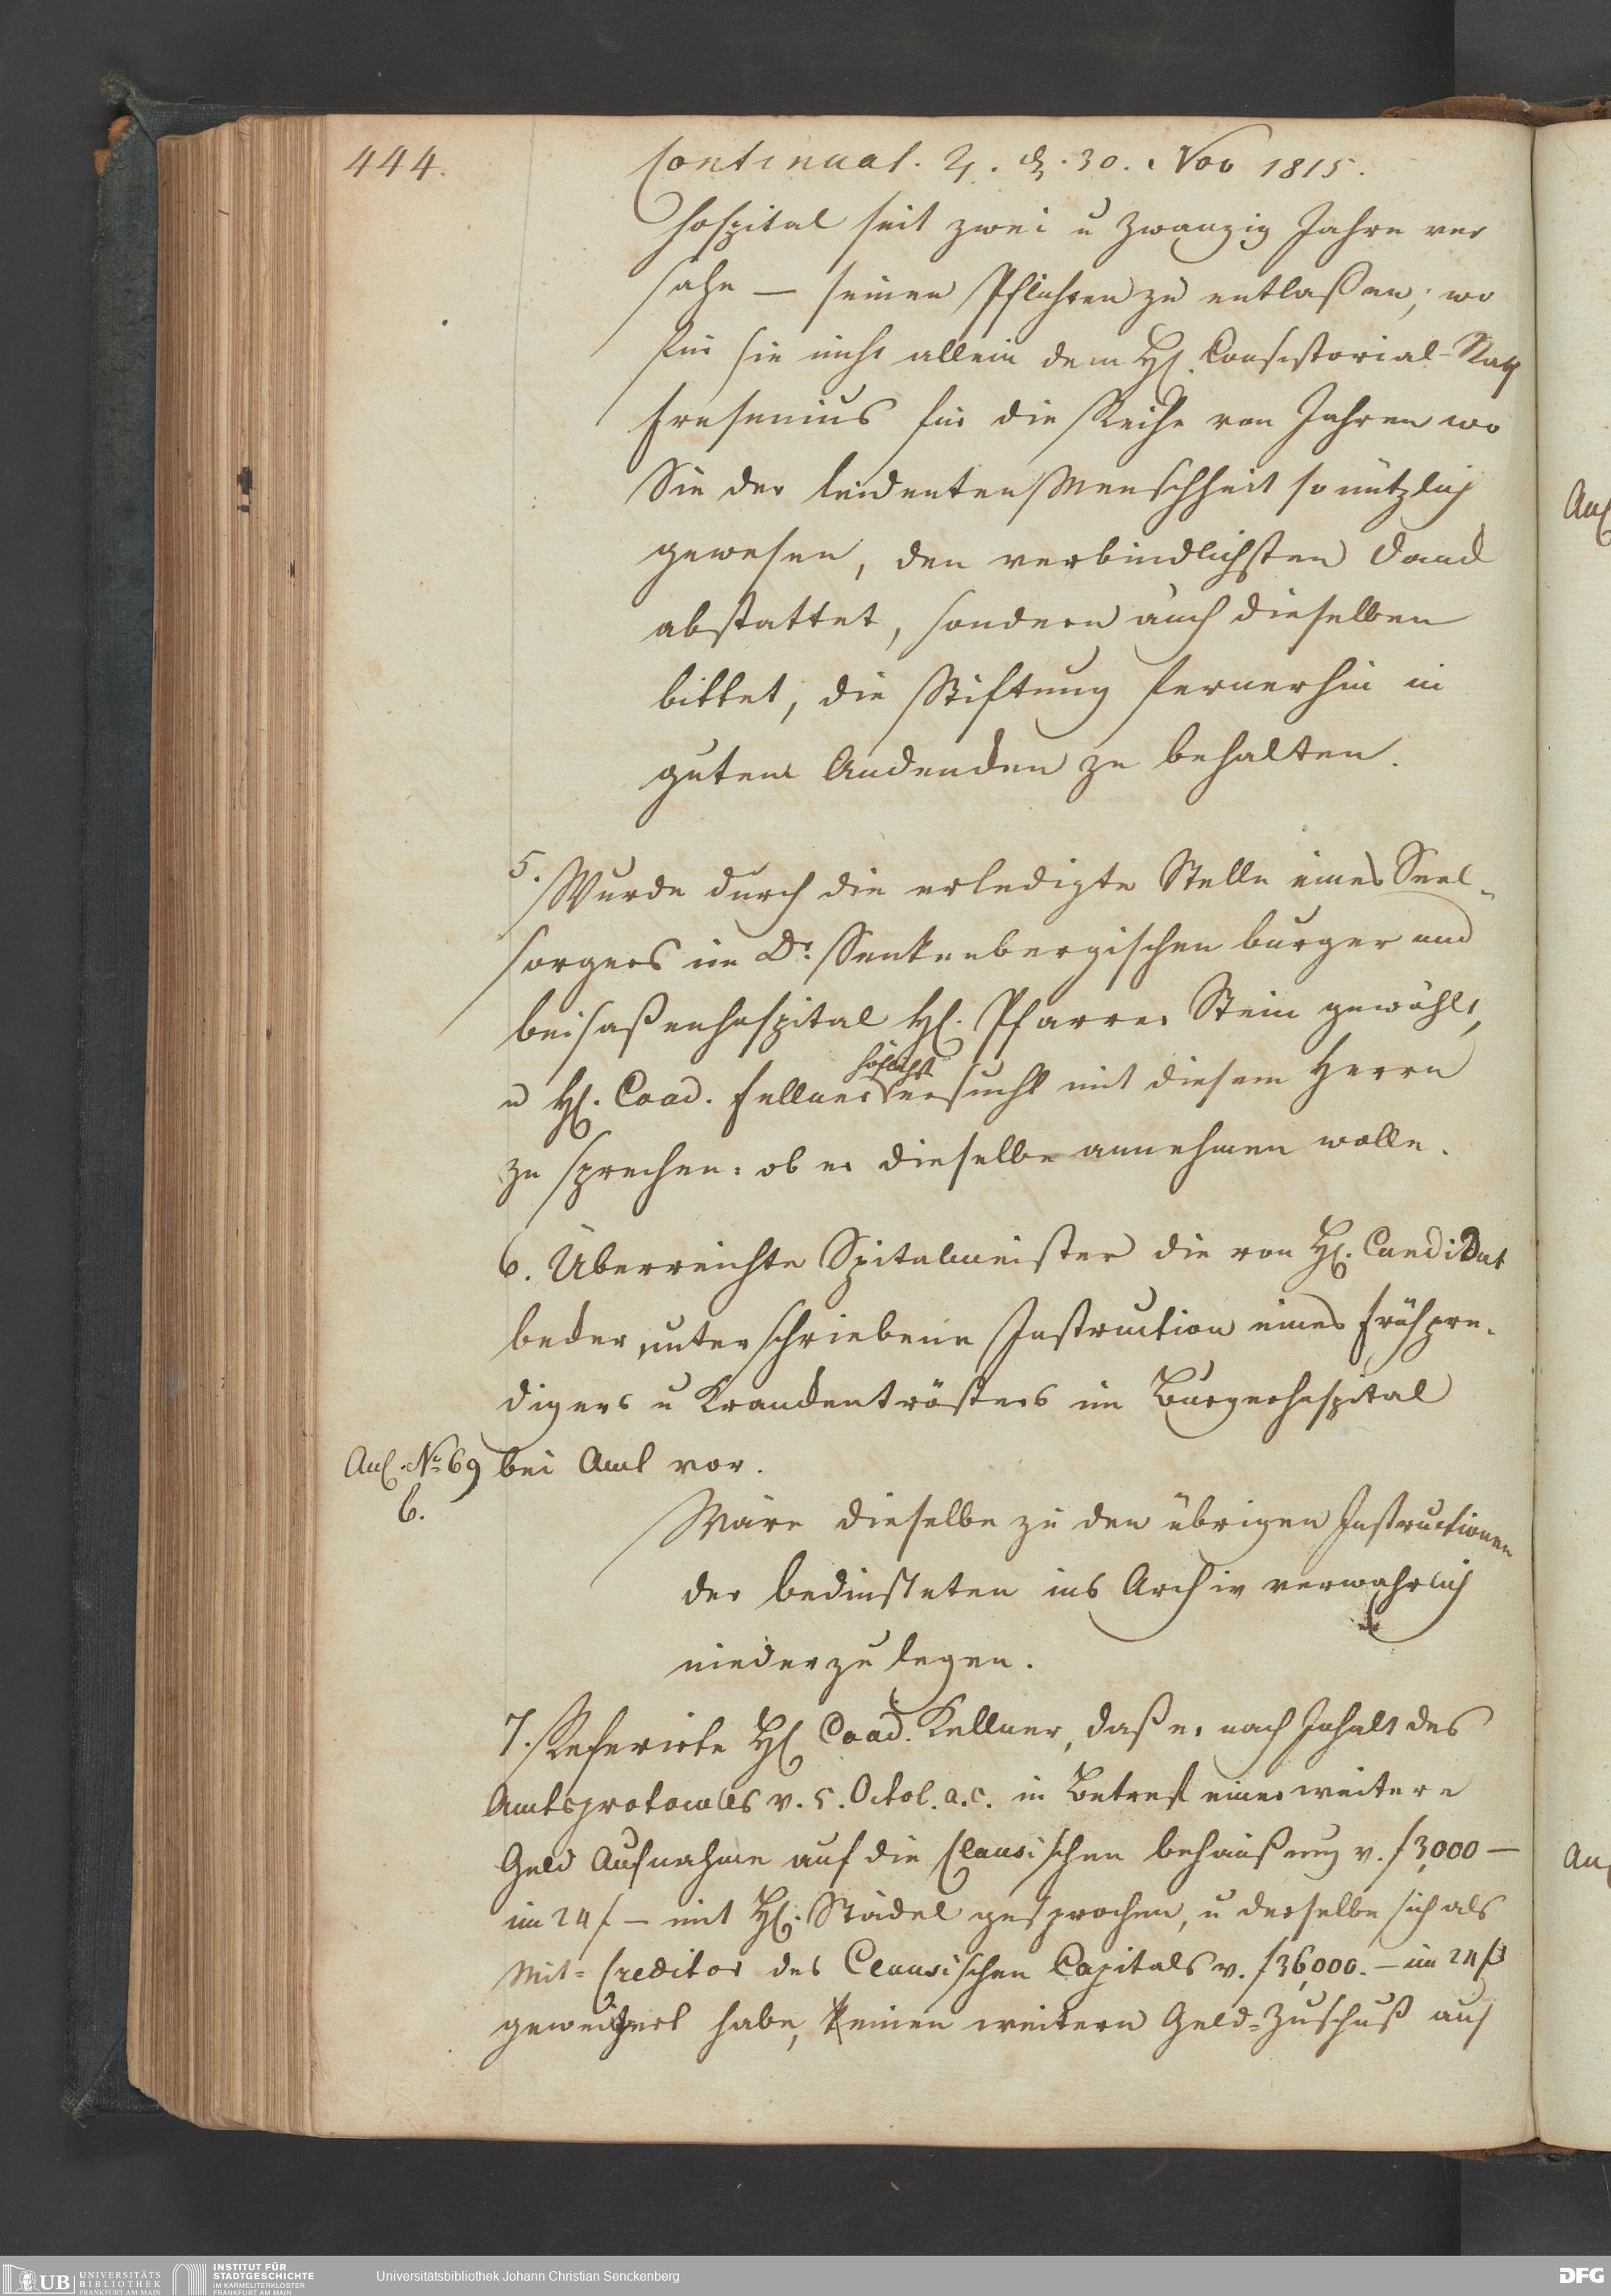 444.
Continuat. ♃. d. 30. Nov 1815.
Hospital seit zwei u zwanzig Jahre ver
sahe — seinen Pflichten zu entlaßen; wo
für sie nicht allein dem H. Consistorial-Rath
Fresenius für die Reihe von Jahren wo
Sie der leidenten Menschheit so nützlich
gewesen, den verbindlichsten Dank
abstattet, sondern auch dieselben
bittet, die Stiftung fernerhin in
gutem Andenken zu behalten.
5. Wurde durch die erledigte Stelle eines Seel-
sorgers im Dr. Senkenbergischen burger und
beisaßenhospital H. Pfarrer Stein gewählt,
höflichst
u H. Coad. Kellner ersucht mit diesem Herrn
zu sprechen: ob er dieselbe annehmen wolle.
6. Überreichte Spitalmeister die von H. Candidat
beder unterschriebene Instruction eines Frühpre-
digers u Krankentrösters im Burgerhospital
Anl. No 69 bei Amt vor.
6.
Wäre dieselbe zu den übrigen Instructionen
der bediensteten ins Archiv verwahrlich
niederzulegen.
7. Referirte H. Coad. Kellner, daß er nach Inhalt des
Amtsprotocolls v. 5. Octob. a. c. in Betref einer weitere
Geld Aufnahme auf die Clausischen behaußung v. f 3,000 —
im 24 f — mit H. Städel gesprochen, u derselbe sich als
Mit-Creditor des Clausischen Capitals v. f 36,000. — im 24 f
geweigert habe, keinen weitern Geld-Zuschuß auf
Anl
Anl
UB UNIVERSITÄTS
BIBLIOTHEK
FRANKFURT AM MAIN
INSTITUT FÜR
STADTGESCHICHTE
IM KARMELITERKLOSTER
FRANKFURT AM MAIN
Universitätsbibliothek Johann Christian Senckenberg
DFG